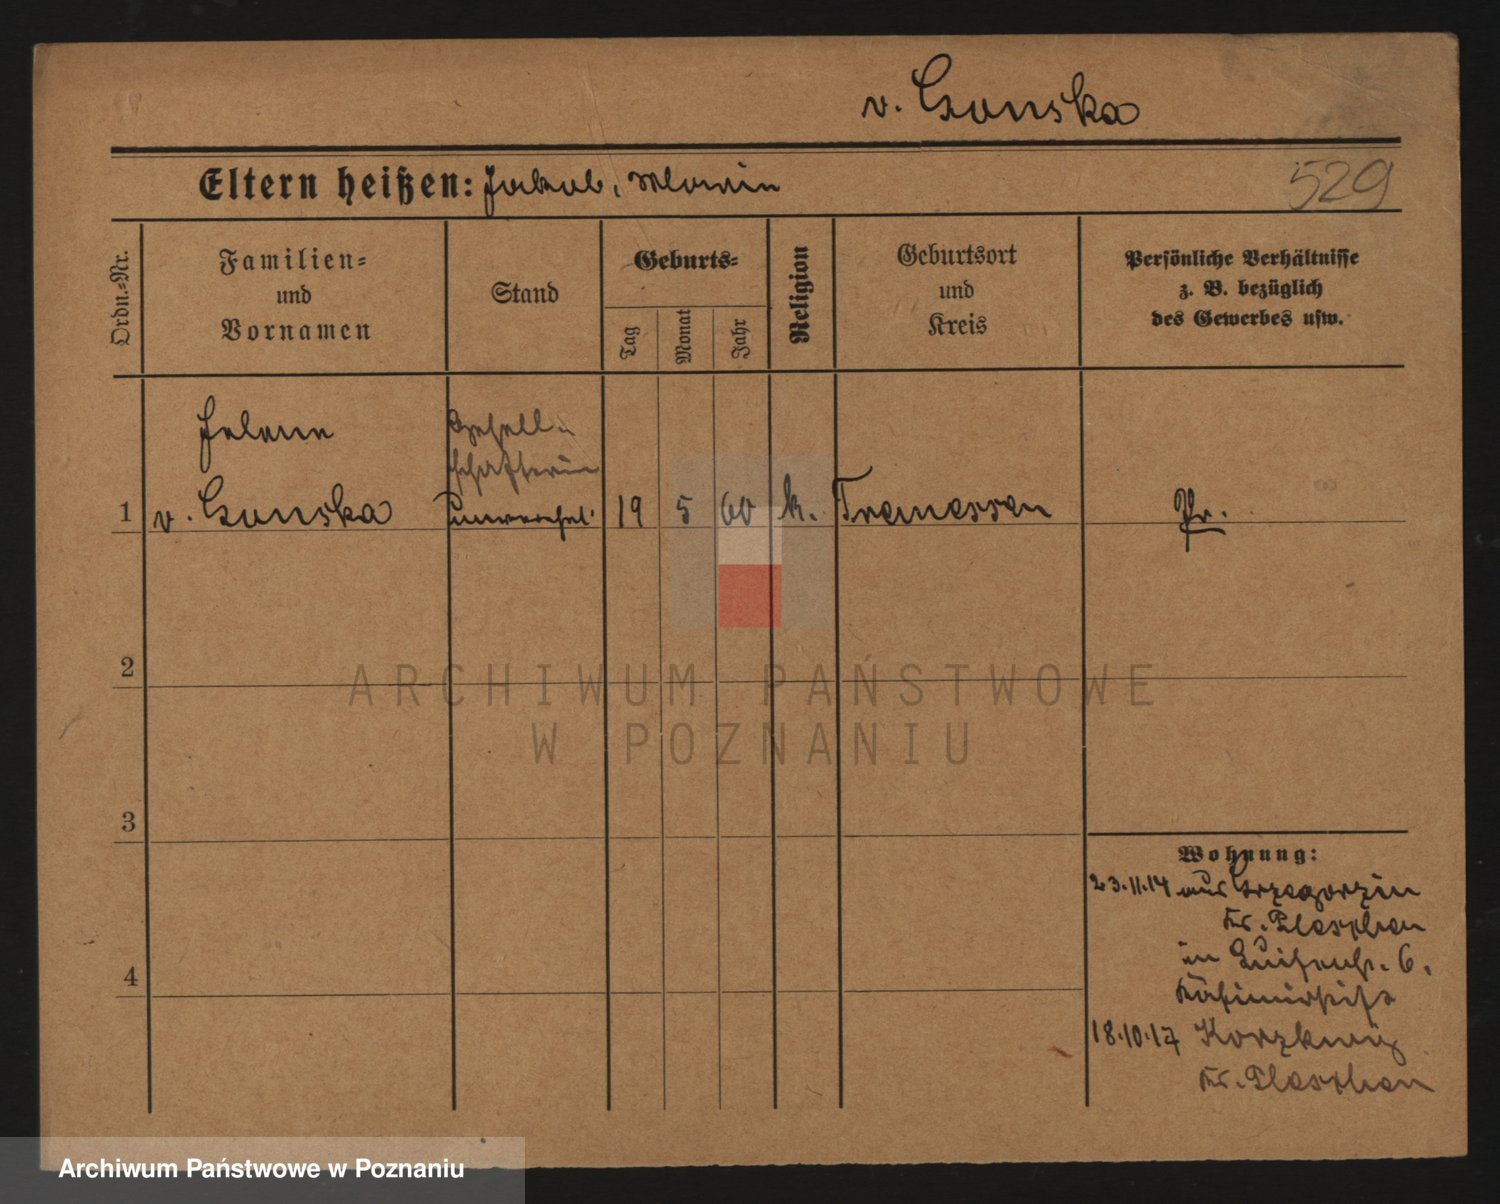 v. Gonska
Eltern heißen: Jakob, Maria
529
Ordn.-Nr.
Familien-
und
Vornamen
Stand
Geburts-
Tag
Monat
Jahr
Religion
Geburtsort
und
Kreis
Persönliche Verhältnisse
z. B. bezüglich
des Gewerbes usw.
Helene
Gesell-
schafterin
1 v. Gonska unverehel. 19 5 60 k. Tremessen Pr.
2
3
4
Wohnung:
23.11.14 aus Grzegorzin
Kr. Pleschen
in Luisenstr. 6.
18.10.17
Kr. Pleschen
ARCHIWUM PAŃSTWOWE
W POZNANIU
Archiwum Państwowe w Poznaniu